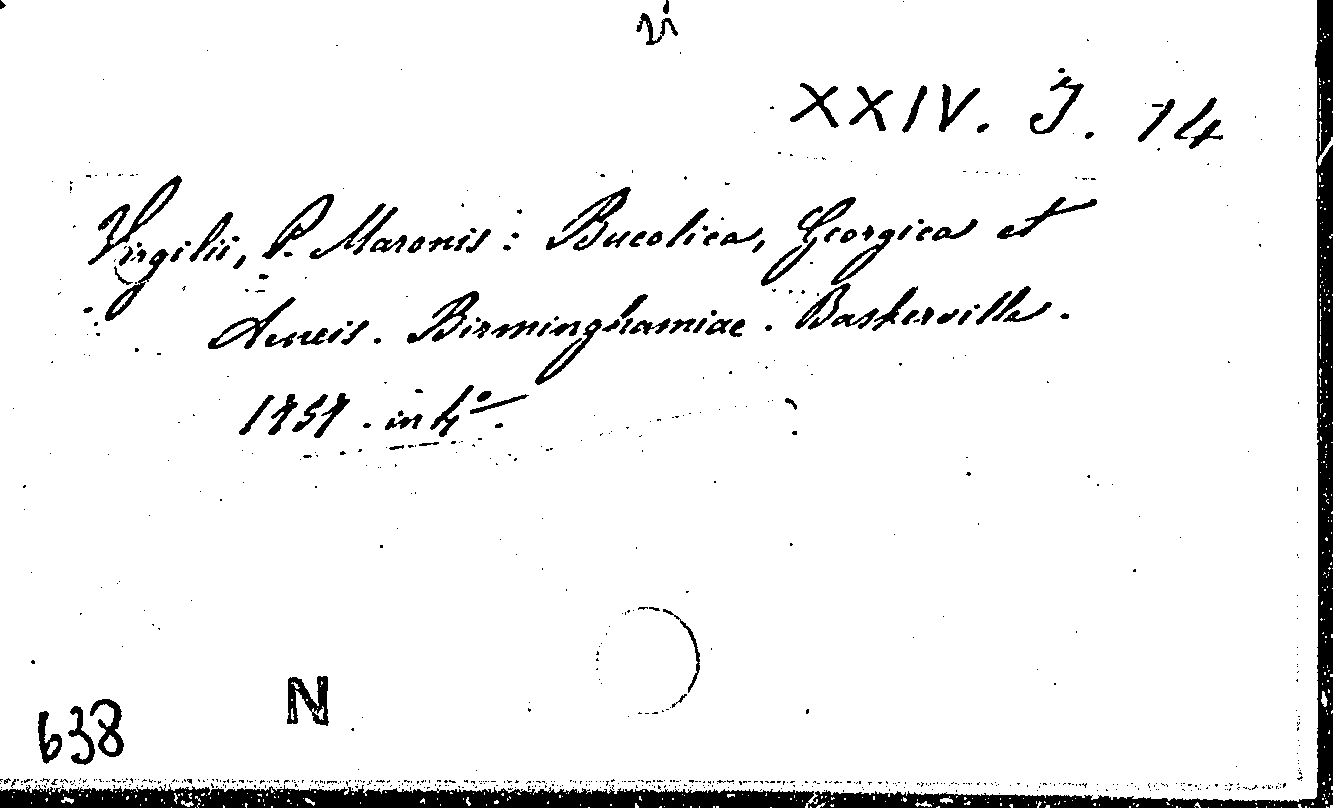 vi
XXIV. J. 14
Virgilii, P. Maronis: Bucolica, Georgica et
Aeneis. Birminghamiae. Baskerville.
1757. in 4º.
N
638